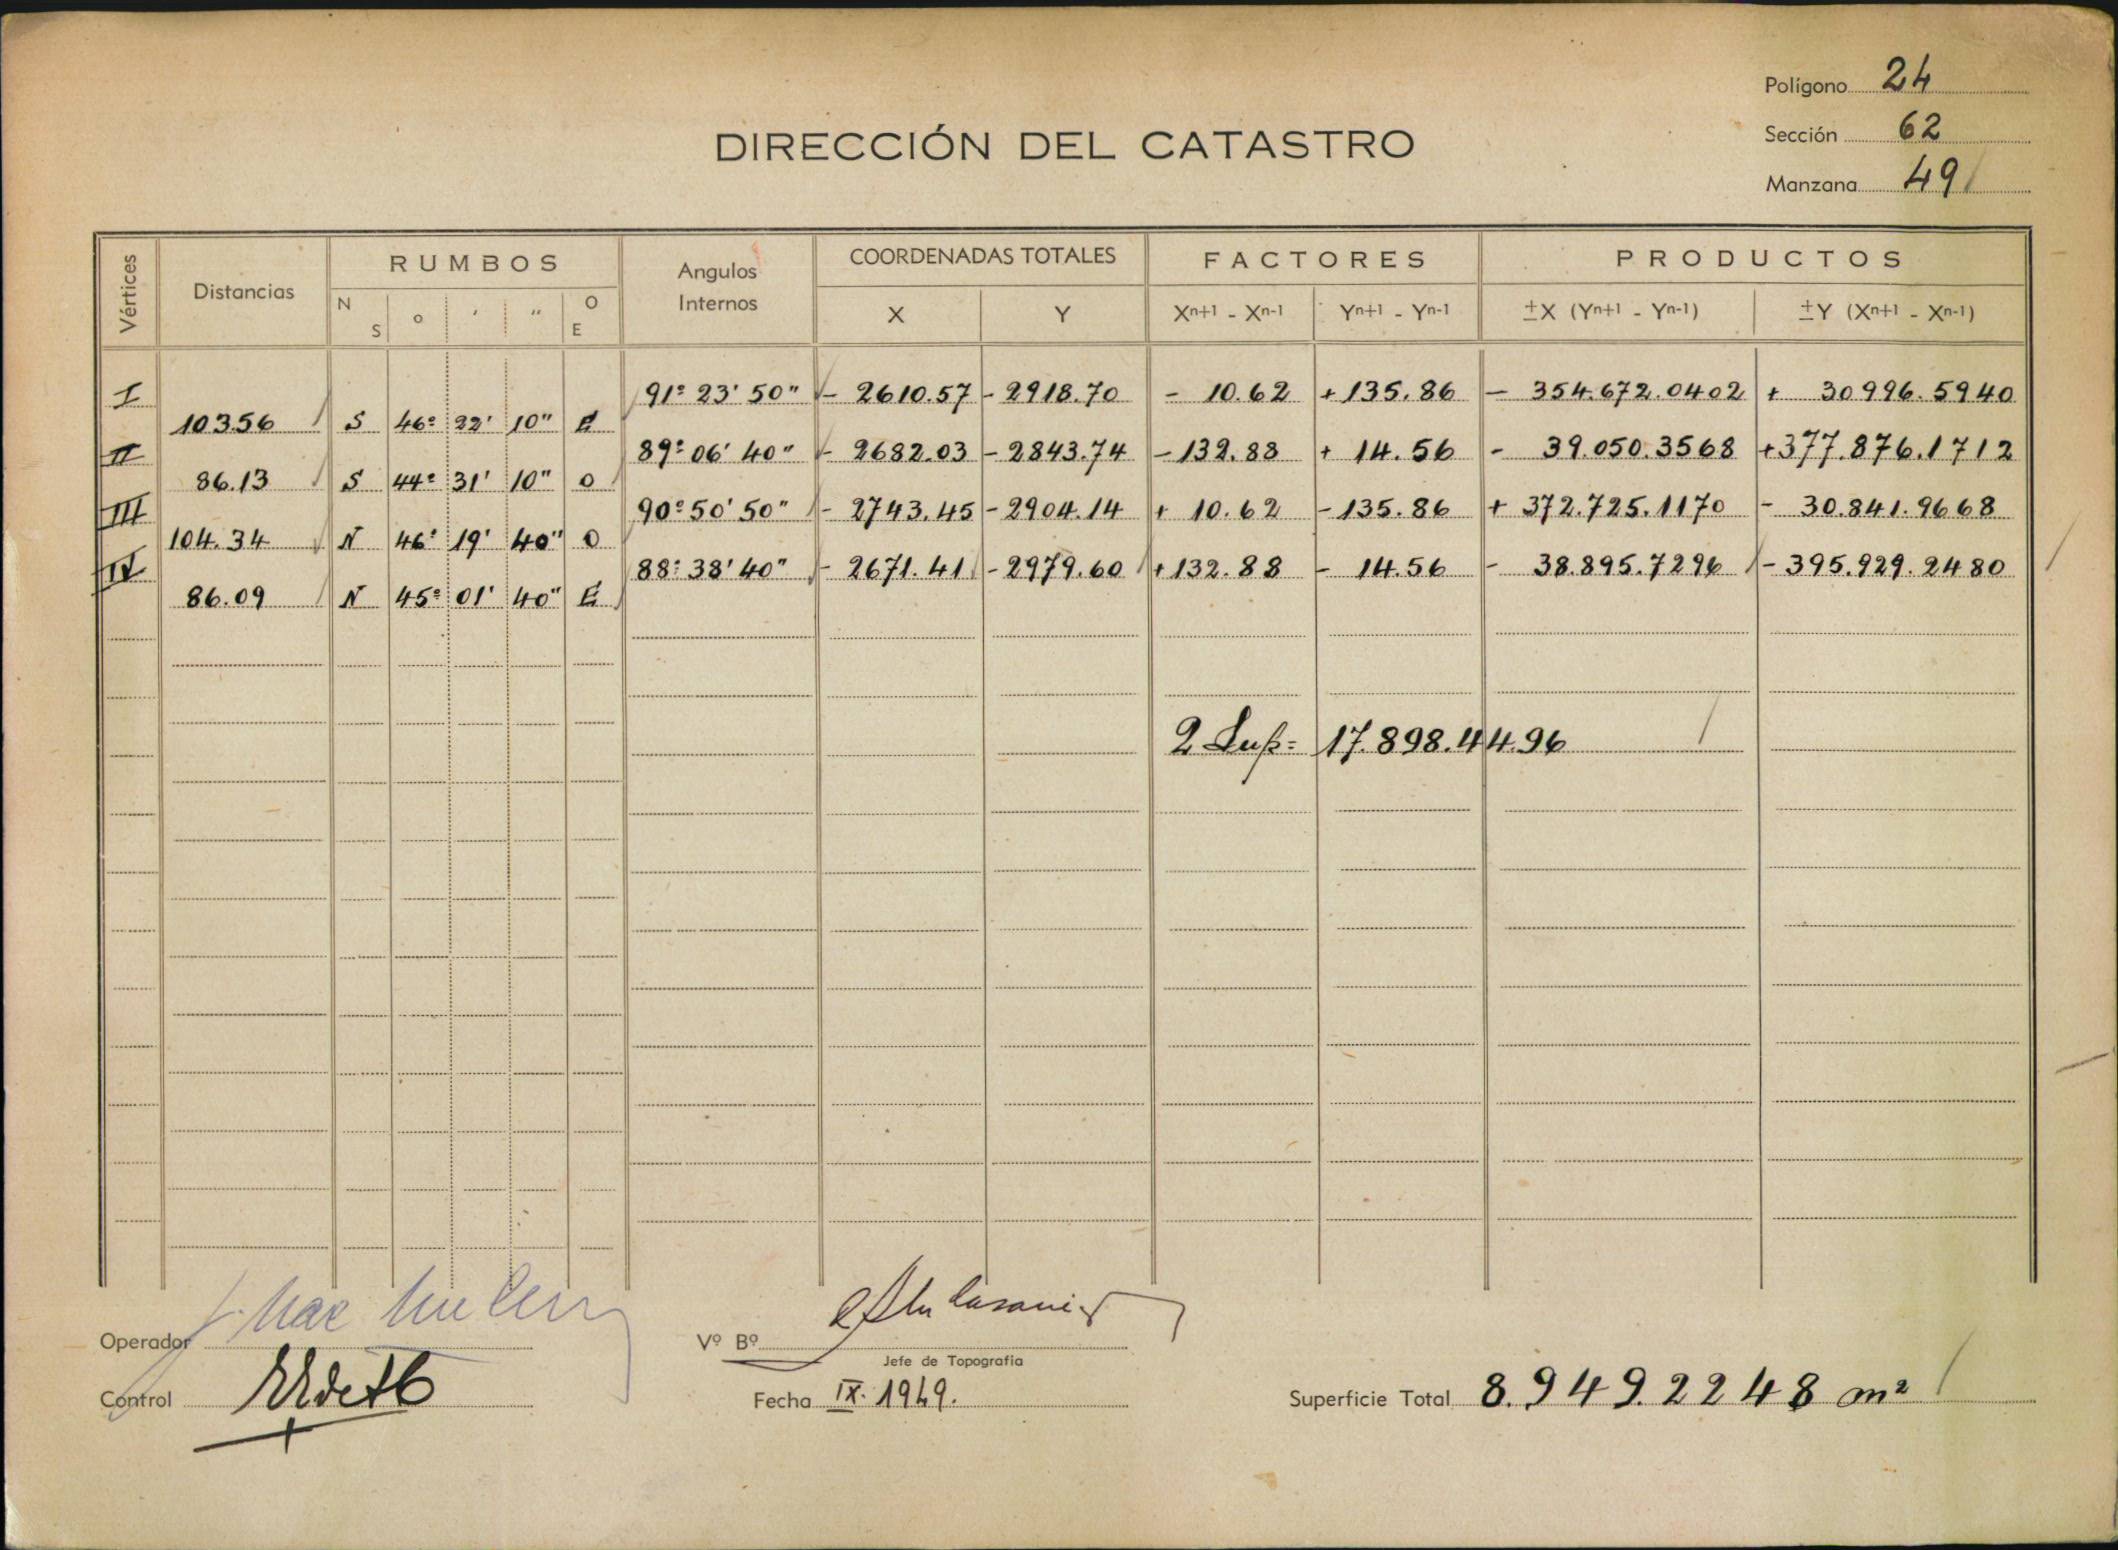 Polígono 24
Sección 62
Manzana 49
DIRECCIÓN DEL CATASTRO
Vértices Distancias RUMBOS Angulos Internos COORDENADAS TOTALES FACTORES PRODUCTOS
N S o ′ ″ O E X Y Xn+1 - Xn-1 Yn+1 - Yn-1 ±X (Yn+1 - Yn-1) ±Y (Xn+1 - Xn-1)
I 91º 23' 50" - 2610.57 - 2918.70 - 10.62 + 135.86 - 354.672.0402 + 30996.5940
103.56 S 46º 22' 10" E
II 89º 06' 40" - 2682.03 - 2843.74 - 132.88 + 14.56 - 39.050.3568 + 377.876.1712
86.13 S 44º 31' 10" O
III 90º 50' 50" - 2743.45 - 2904.14 + 10.62 - 135.86 + 372.725.1170 - 30.841.9668
104.34 N 46º 19' 40" O
IV 88º 38' 40" - 2671.41 - 2979.60 + 132.88 - 14.56 - 38.895.7296 - 395.929.2480
86.09 N 45º 01' 40" E
2 Sup = 17.898.4496
Operador
Vº Bº
Jefe de Topografía
Control
Fecha IX. 1949.
Superficie Total 8.949.2248 m²